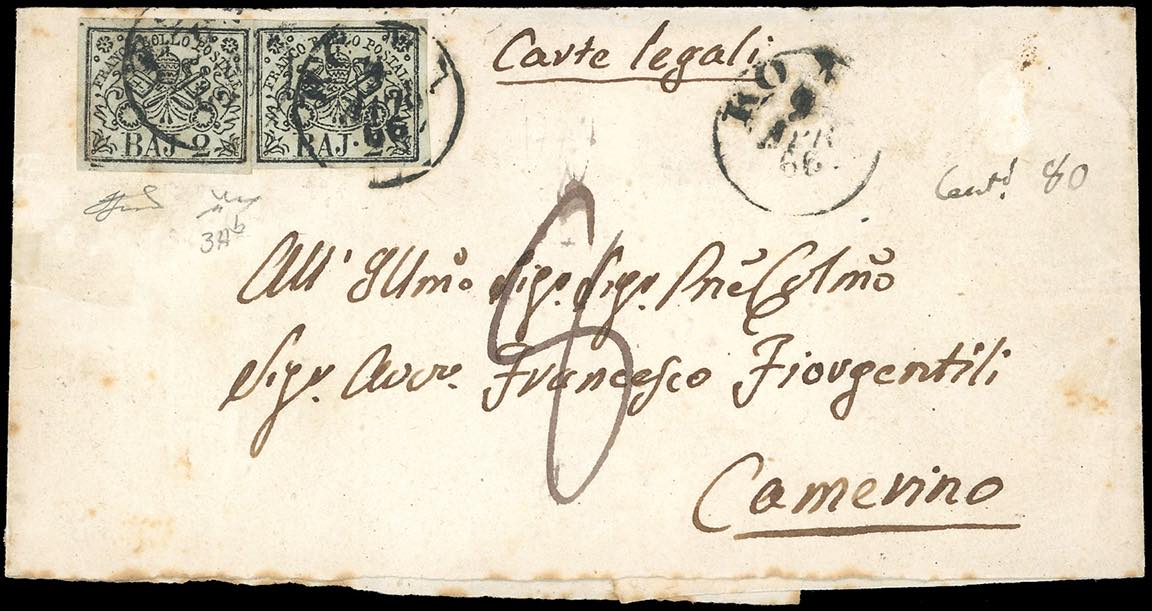 FRANCO BOLLO POSTALE
BAJ 2
FRANCO BOLLO POSTALE
BAJ. 2
Carte legali
ROMA
9
APR
66
Cent! 80
3Ab
All' Illmo Sigr. Sigr. Pne Colmo
Sigr. Avvo. Francesco Fiorgentili
Camerino
8